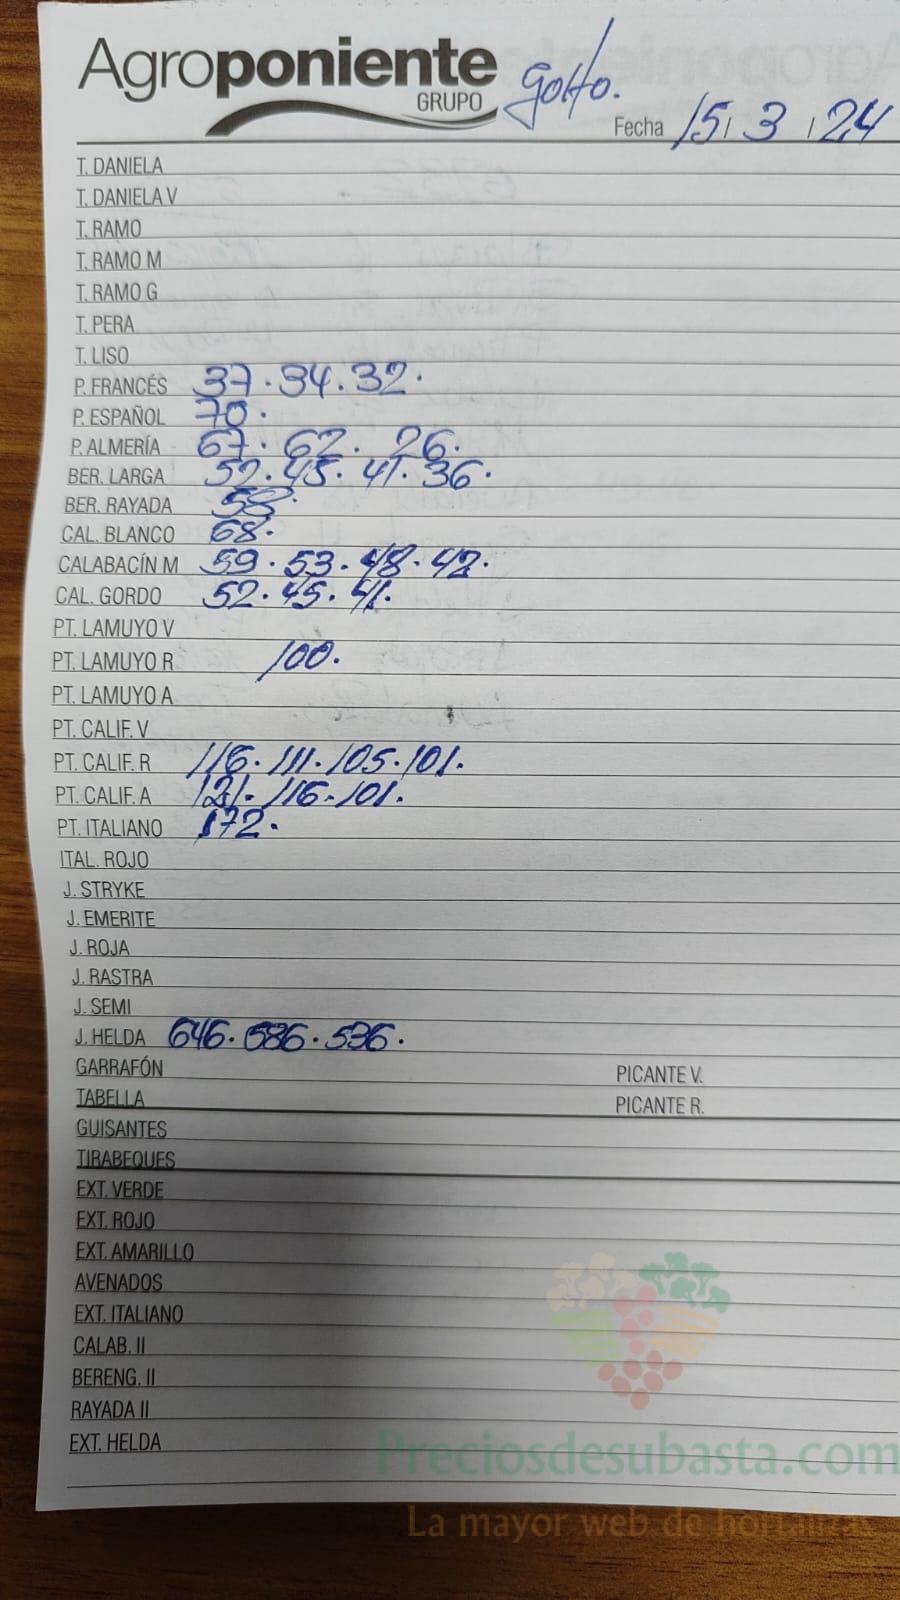 Agroponiente
GRUPO
Golfo.
Fecha 15/3/24
T. DANIELA
T. DANIELA V
T. RAMO
T. RAMO M
T. RAMO G
T. PERA
T. LISO
P. FRANCÉS 37.34.32.
P. ESPAÑOL 70.
P. ALMERÍA 67.62.26.
BER. LARGA 52.45.41.36.
BER. RAYADA 58.
CAL. BLANCO 68.
CALABACÍN M 59.53.48.42.
CAL. GORDO 52.45.41.
PT. LAMUYO V
PT. LAMUYO R 100.
PT. LAMUYO A
PT. CALIF. V
PT. CALIF. R 116.111.105.101.
PT. CALIF. A 121.116.101.
PT. ITALIANO 172.
ITAL. ROJO
J. STRYKE
J. EMERITE
J. ROJA
J. RASTRA
J. SEMI
J. HELDA 646.586.536.
GARRAFÓN PICANTE V.
TABELLA PICANTE R.
GUISANTES
TIRABEQUES
EXT. VERDE
EXT. ROJO
EXT. AMARILLO
AVENADOS
EXT. ITALIANO
CALAB. II
BERENG. II
RAYADA II
EXT. HELDA
Preciosdesubasta.com
La mayor web de hortalizas